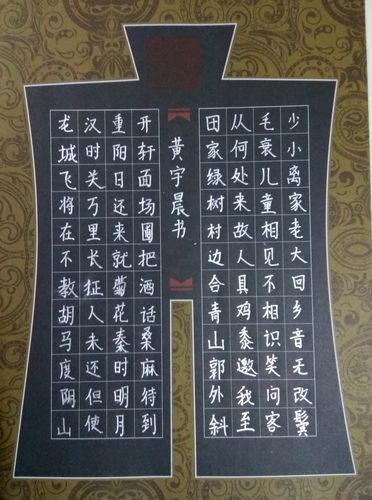 少小离家老大回乡音无改鬓
毛衰儿童相见不相识笑问客
从何处来故人具鸡黍邀我至
田家绿树村边合青山郭外斜
黄宇晨书
开轩面场圃把酒话桑麻待到
重阳日还来就菊花秦时明月
汉时关万里长征人未还但使
龙城飞将在不教胡马度阴山